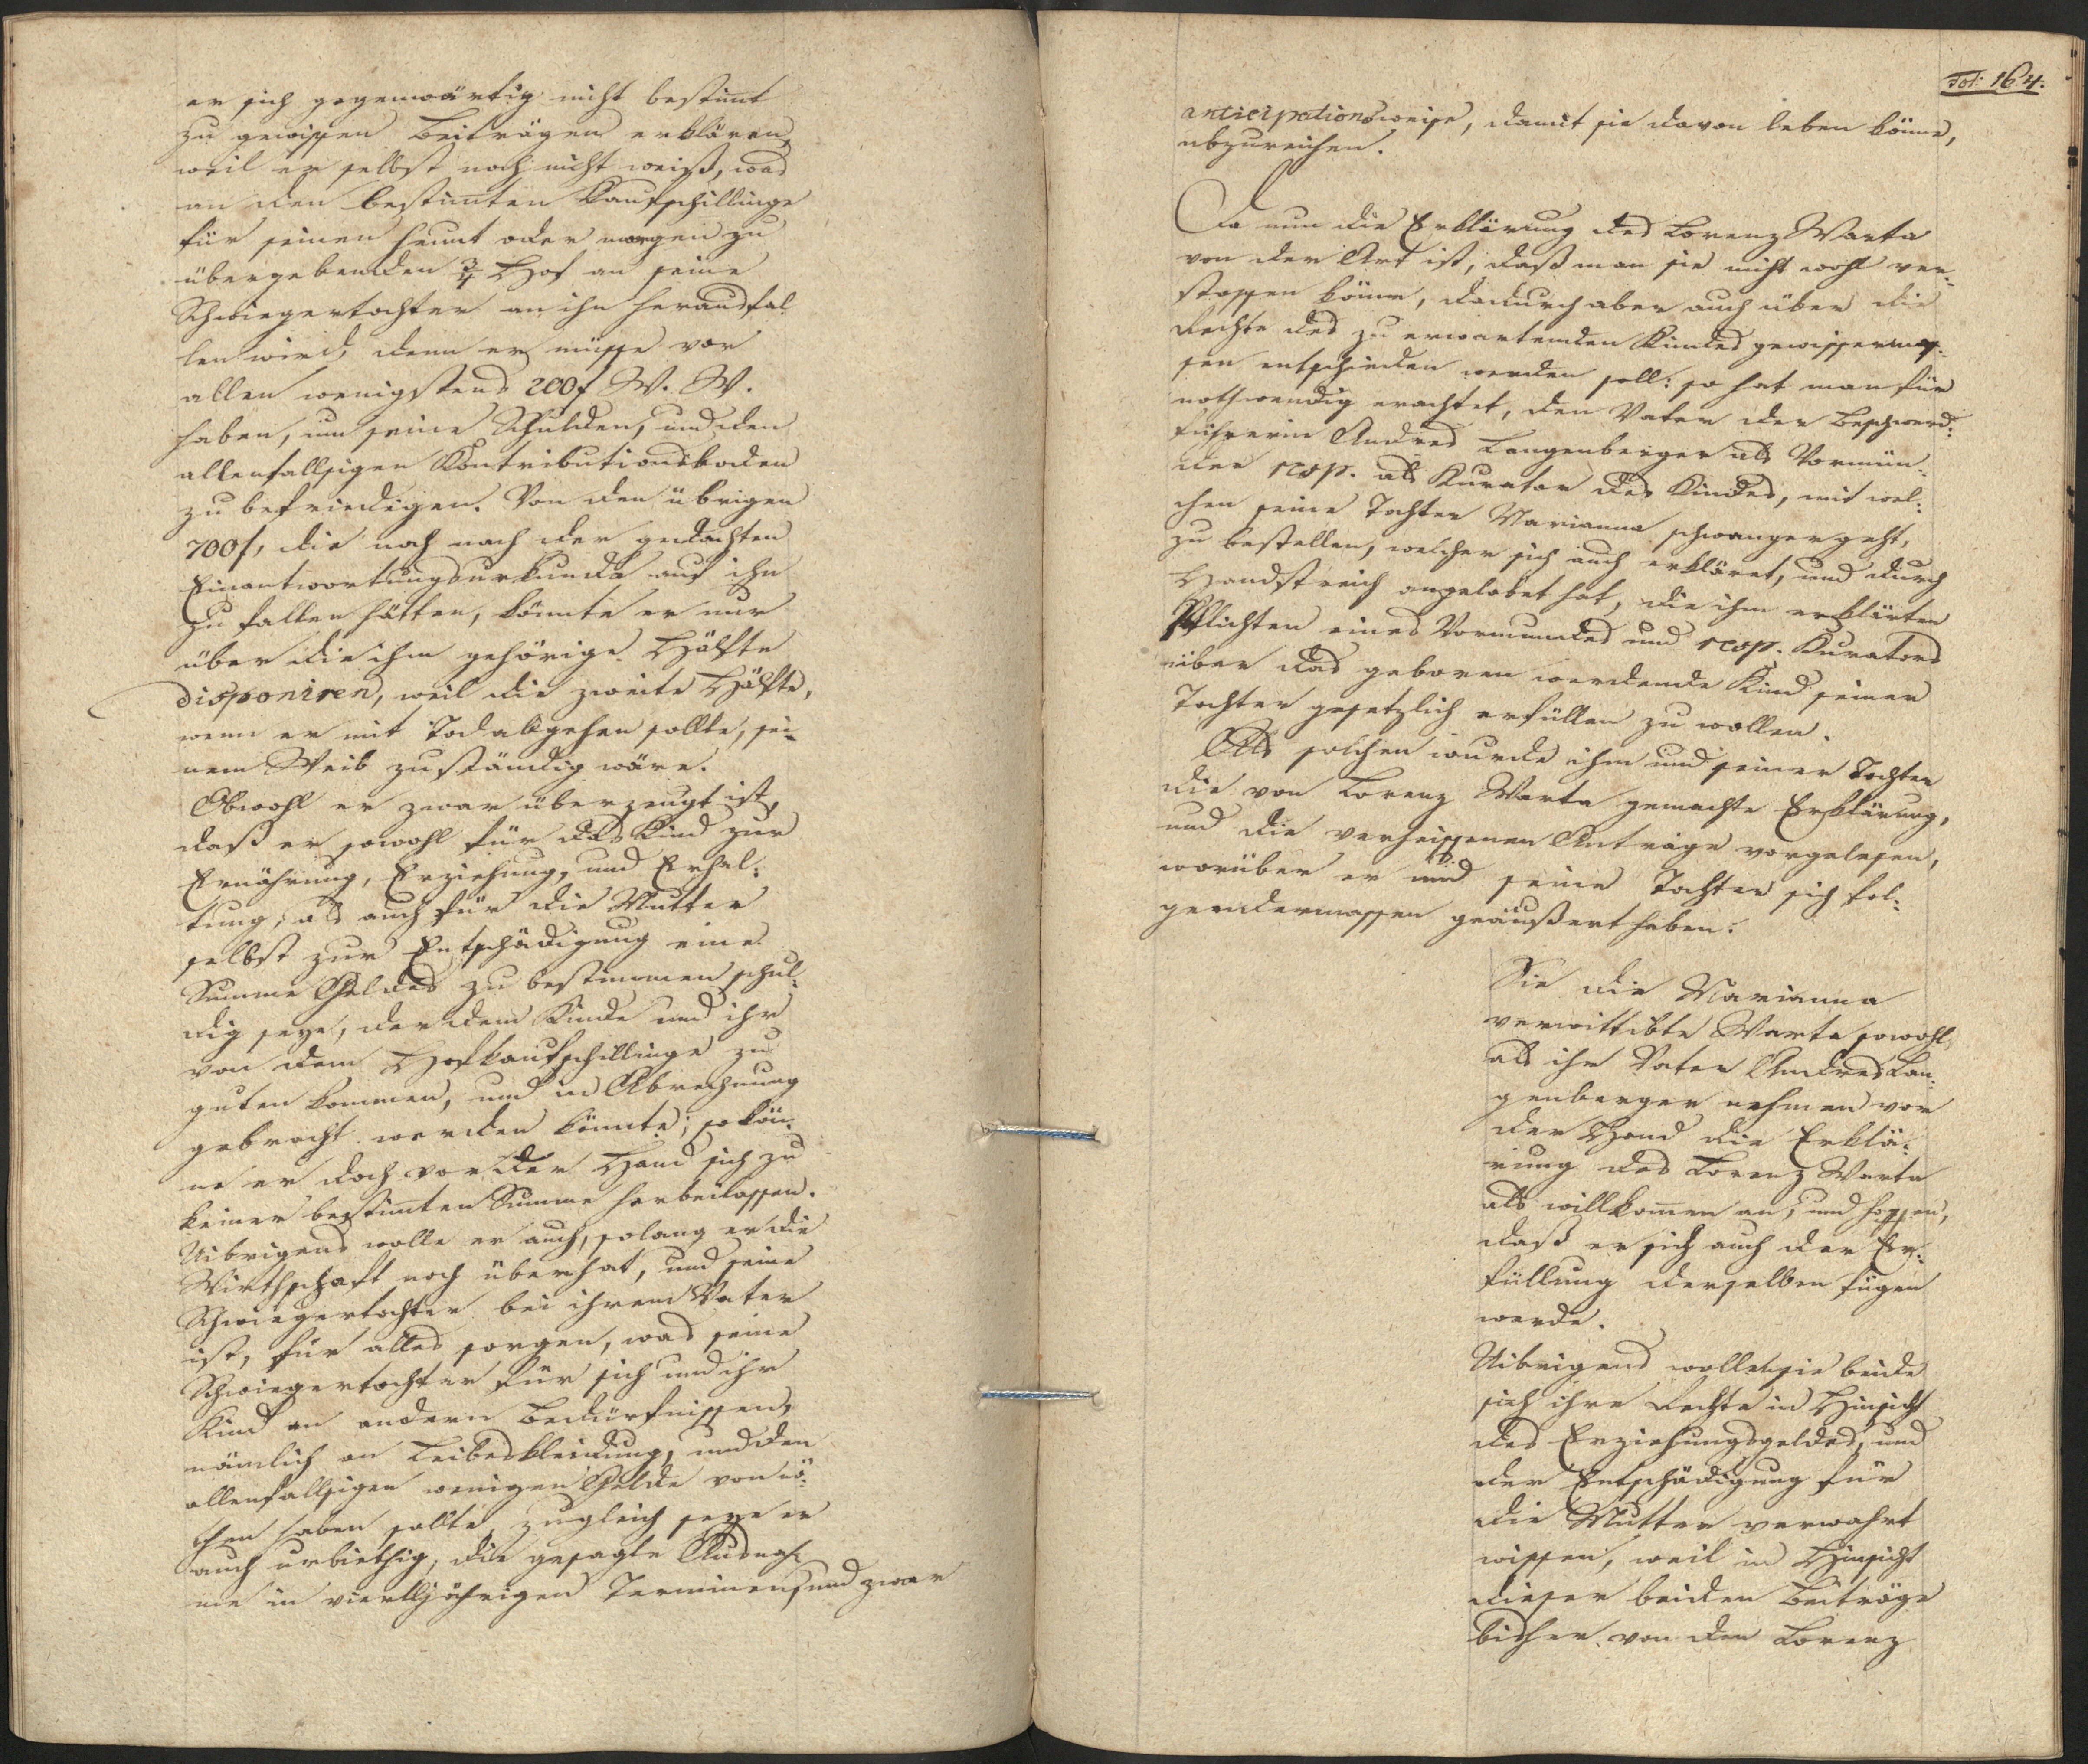 er sich gegenwärtig nicht bestimt
zu gewissen Beiträgen erklären,
weil er selbst noch nicht weiß, was
an den bestimten Kaufschillinge
für seinen heunt oder morgen zu
übergebenden 3/4 Hof an seine
Schwiegertochter an ihn herausfal
len wird, denn er müsse vor
allen wenigstens 200f W. W.
haben, um seine Schulden, und den
allenfallsigen Kontributionsboden
zu befriedigen. Von den übrigen
700f, die noch nach der gedachten
Einantwortungsurkunde auf ihn
zu fallen hätten, könnte er nur
über die ihm gehörige Hälfte
disponiren, weil die zweite Hälfte,
wenn er mit Tod abgehen sollte, sei-
nem Weib zuständig wäre.
Obwohl er zwar überzeugt ist,
daß er sowohl für das Kind zur
Ernährung, Erziehung, und Erhal-
tung, als auch für die Mutter
selbst zur Entschädigung eine
Summe Geldes zu bestimmen schul-
dig seye, der dem Kinde und ihr
von dem Hofkaufschillinge zu
guten kommen, und in Abrechnung
gebracht werden könnte; so kön-
ne er doch vor der Hand sich zu
keiner bestimten Summe herbeilassen.
Uibrigens wolle er auch, solang er die
Wirthschaft noch überhat, und seine
Schwiegertochter bei ihrem Vater
ist, für alles sorgen, was seine
Schwiegertochter für sich und ihr
Kind an andern Bedürfnissen,
nämlich an Leibeskleidung, und den
allenfallsigen wenigen Gelde von nö-
then haben sollte, zugleich seye er
auch urbiethig, die gesagte Ausnah
me in vierlljährigen Terminen, und zwar
Fol: 164.
anticipationsweise, damit sie davon leben könne,
abzureichen.
Da nun die Erklärung des Lorenz Warta
von der Art ist, daß man sie nicht wohl ver-
stossen könne, dadurch aber auch über die
Rechte des zu erwartenden Kindes gewissermas-
sen entschieden werden soll: so hat man für
nothwendig erachtet, den Vater der Beschwerd-
führerin Andres Langenberger als Vormün-
der resp. als Kurator des Kindes, mit wel-
chen seine Tochter Marianna schwanger geht,
zu bestellen, welcher sich auch erkläret, und durch
Handstreich angelobet hat, die ihm erklärten
Pflichten eines Vormundes und resp. Kurators
über das geboren werdende Kind seiner
Tochter gesetzlich erfüllen zu wollen.
Als solchen wurde ihm und seiner Tochter
die von Lorenz Warta gemachte Erklärung,
und die verheissenen Anträge vorgelesen,
worüber er und seine Tochter sich fol-
gendermassen geäußert haben:
Sie die Marianna
verwittibte Warta sowohl
als ihr Vater Andres Lan-
genberger nehmen vor
der Hand die Erklä-
rung des Lorenz Warta
als willkomen an, und hoffen,
daß er sich auch der Er-
füllung derselben fügen
werde.
Uibrigens wollen sie beide
sich ihre Rechte in Hinsicht
des Erziehungsgeldes, und
der Entschädigung für
die Mutter verwahrt
wissen, weil in Hinsicht
dieser beiden Beiträge
bisher von den Lorenz